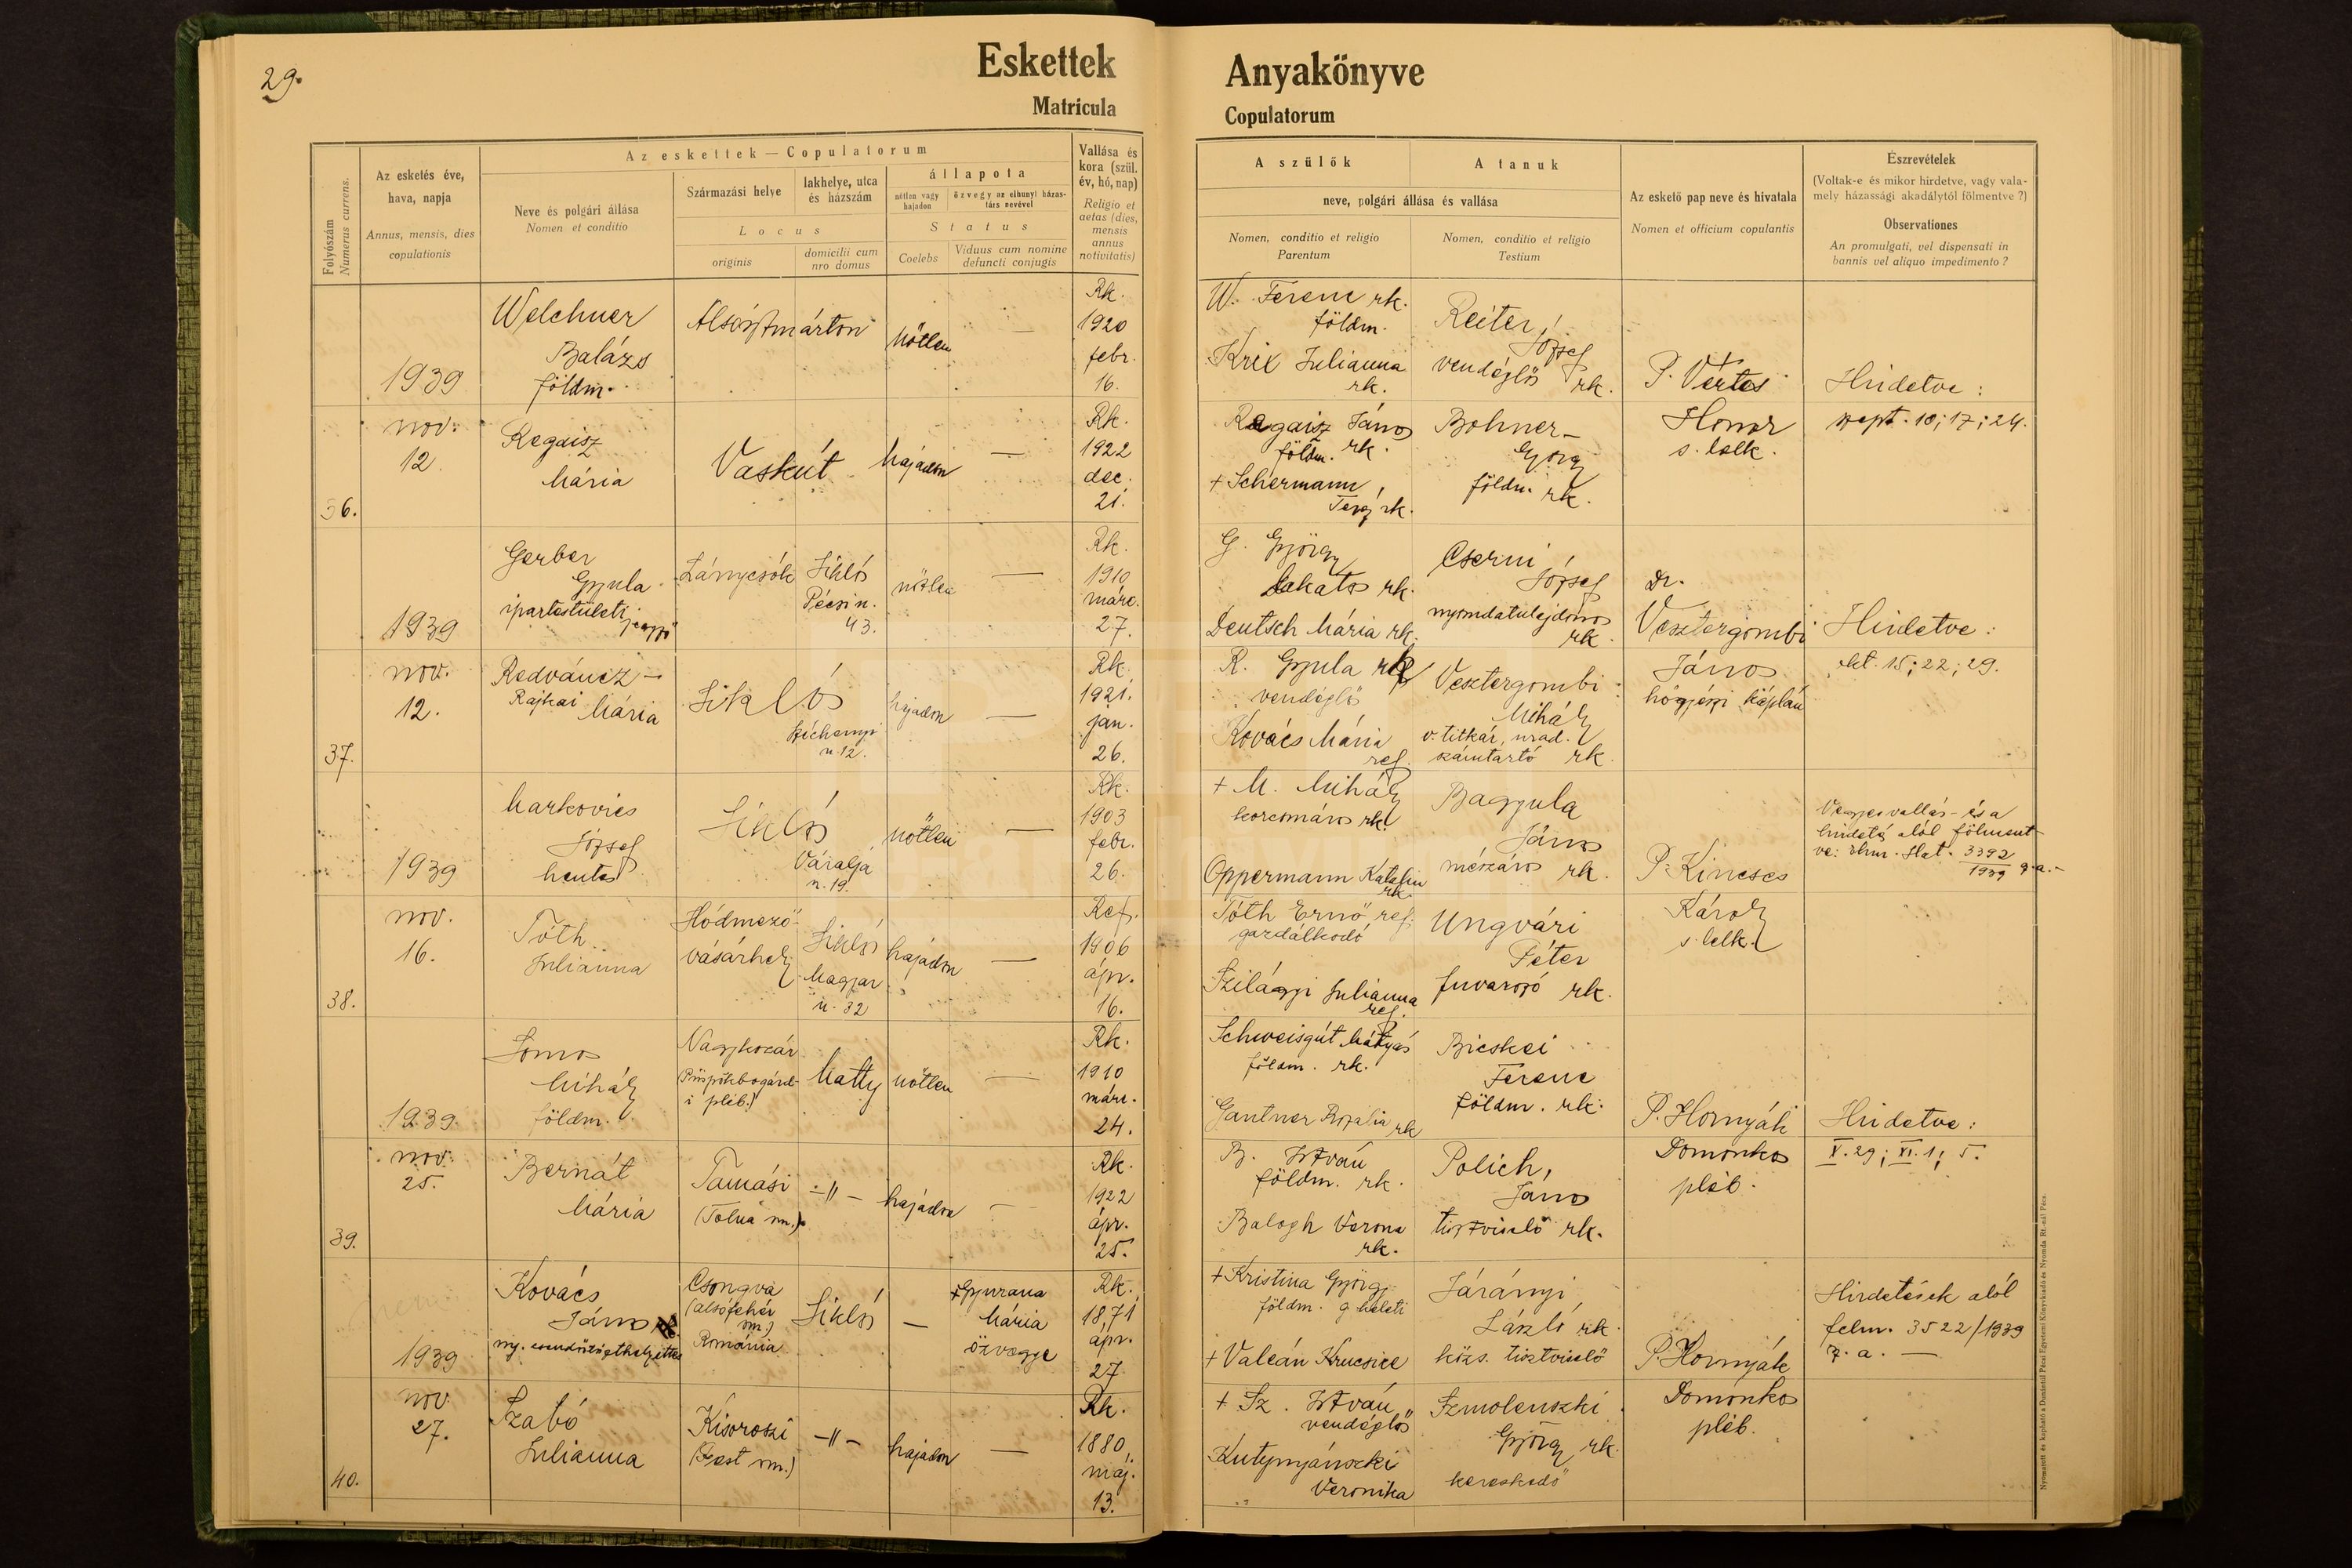 29.
Eskettek
Matricula
Anyakönyve
Copulatorum
Folyószám
Numerus currens.
Az esketés éve,
hava, napja
Annus, mensis, dies
copulationis
Az eskettek — Copulatorum
Neve és polgári állása
Nomen et conditio
Származási helye
lakhelye, utca
és házszám
Locus
originis
domicilii cum
nro domus
állapota
nőtlen vagy
hajadon
özvegy az elhunyt házas-
társ nevével
Status
Coelebs
Viduus cum nomine
defuncti conjugis
Vallása és
kora (szül.
év, hó, nap)
Religio et
aetas (dies,
mensis
annus
notivitatis)
A szülők
A tanuk
neve, polgári állása és vallása
Nomen, conditio et religio
Parentum
Nomen, conditio et religio
Testium
Az eskető pap neve és hivatala
Nomen et officium copulantis
Észrevételek
(Voltak-e és mikor hirdetve, vagy vala-
mely házassági akadálytól fölmentve ?)
Observationes
An promulgati, vel dispensati in
bannis vel aliquo impedimento ?
36.
1939
nov.
12.
Welchner
Balázs
földm.
Alsósztmárton
nőtlen
—
Rk.
1920
febr.
16.
W. Ferenc rk.
földm.
Krix Julianna
rk.
Reiter
József
vendéglős rk.
P. Vértes
Honor
s. lelk.
Hirdetve:
szept. 10; 17; 24.
Regaisz
Mária
Vaskút
hajadon
—
Rk.
1922
dec.
21.
Regaisz János
földm. rk.
+ Schermann
Teréz rk.
Bohner
György
földm. rk.
37.
1939
nov.
12.
Gerber
Gyula
ipartestületi jegyző
Lánycsók
Siklós
Pécsi u.
43.
nőtlen
—
Rk.
1910
márc.
27.
G. György
lakatos rk.
Deutsch Mária rk.
Cserni
József
nyomdatulajdonos
rk.
Dr.
Vesztergombi
János
högyészi káplán
Hirdetve:
okt. 15; 22; 29.
Redváncz-
Rajkai Mária
Siklós
Széchenyi
u. 12.
hajadon
—
Rk.
1921.
jan.
26.
R. Gyula rk
vendéglős
Kovács Mária
ref.
Vesztergombi
Mihály
v. titkár, urad.
számtartó rk.
38.
1939
nov.
16.
Markovics
József
hentes
Siklós
Váralja
u. 19.
nőtlen
—
Rk.
1903
febr.
26.
+ M. Mihály
korcsmáros rk.
Oppermann Katalin
rk.
Bagyula
János
mészáros rk.
P. Kincses
Károly
s. lelk.
Vegyesvallás- és a
hirdetés alól fölment-
ve: 3392
1939
Tóth
Julianna
Hódmező-
vásárhely
Siklós
Magyar
u. 32
hajadon
—
Ref.
1906
ápr.
16.
Tóth Ernő ref.
gazdálkodó
Szilágyi Julianna
ref.
Ungvári
Péter
fuvarozó rk.
39.
1939.
nov.
25.
Somos
Mihály
földm.
Nagykozár
(Püspökbogárd-
i pléb.)
Matty
nőtlen
—
Rk.
1910
márc.
24.
Schweisgút Mátyás
földm. rk.
Gantner Rozália rk
Bicskei
Ferenc
földm. rk.
P. Hornyák
Domonkos
pléb.
Hirdetve:
X. 29; XI. 1; 5.
Bernát
Mária
Tamási
(Tolna vm.)
-"-
hajadon
—
Rk.
1922
ápr.
25.
B. István
földm. rk.
Balogh Verona
rk.
Polich
János
tisztviselő rk.
40.
1939
nov.
27.
Kovács
János
Csongva
(Alsófehér
vm.)
Románia
Siklós
—
Mária
özvegye
Rk.
1871
ápr.
27.
+ Kristina György
földm. g. keleti
Járányi
László rk
közs. tisztviselő
P. Hornyák
Domonkos
pléb.
Hirdetések alól
felm. 3522/1939
Szabó
Julianna
Kisoroszi
(Pest vm.)
-"-
hajadon
—
Rk.
1880
máj.
13.
+ Sz. István
vendéglős
Veronika
Szmolenszki
György rk.
kereskedő